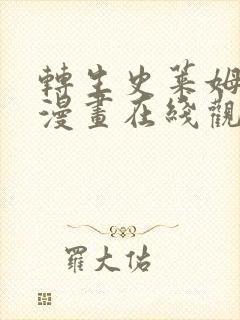 轉生史萊姆
漫畫在綫觀
羅大佑